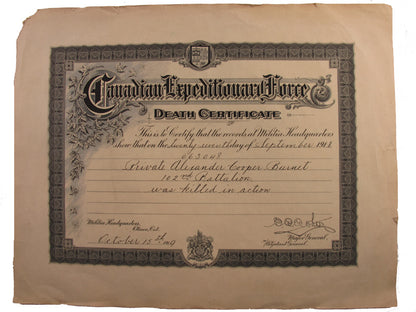 Canadian Expeditionary Force
Death Certificate
This is to Certify that the records at Militia Headquarters
show that on the twenty seventh day of September 1918
663048
Private Alexander Cooper Burnet
102nd Battalion
was killed in action
Militia Headquarters,
Ottawa, Ont.
October 15th 1919
Major General,
Adjutant General.